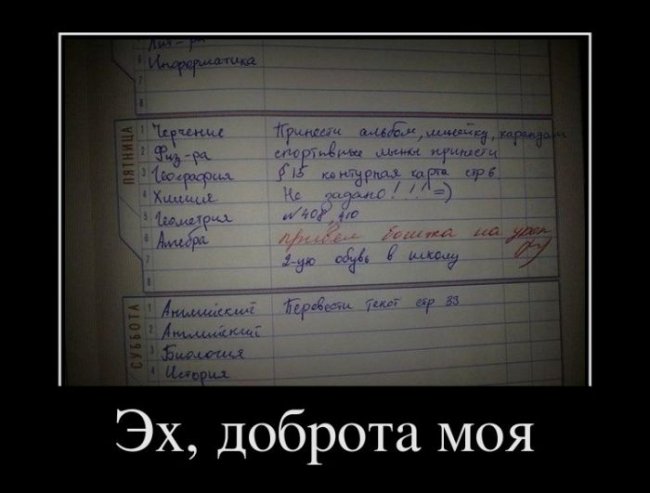 Лит-ра
Информатика
7
8
ПЯТНИЦА
1 Черчение Принести альбом, линейку, карандаш
2 Физ-ра спортивные лыжи принести
3 География § 15 контурная карта стр 6
4 Химия Не задано!!! =)
5 Геометрия №408, 410
6 Алгебра привел бомжа на урок
7 2-ую обувь в школу
8
СУББОТА
1 Английский Перевести текст стр 33
2 Английский
3 Биология
4 История
Эх, доброта моя